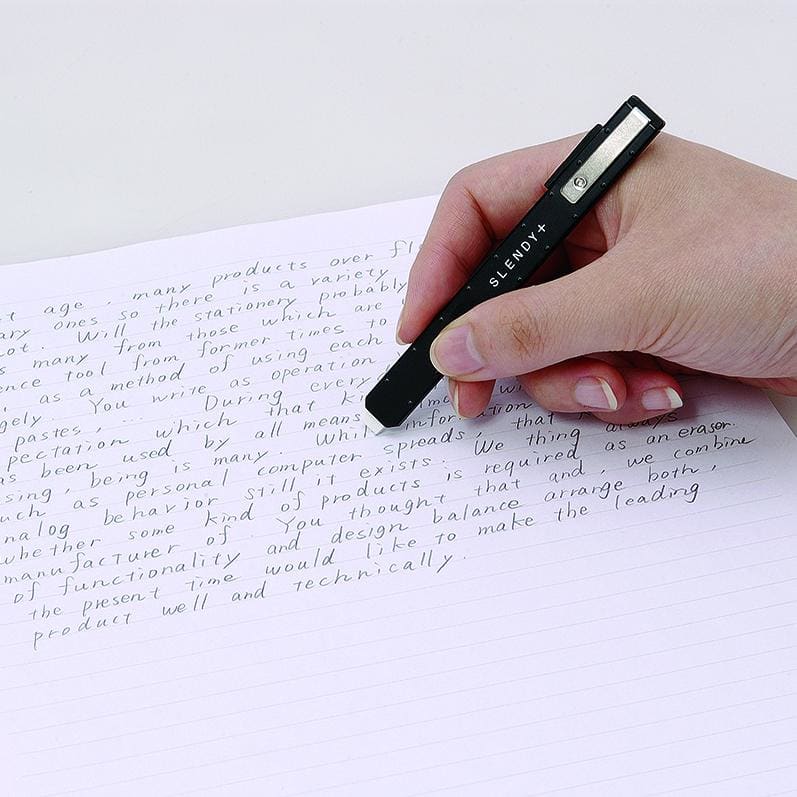 t age, many products over fl
ary ones so there is a variety
ot. Will the stationery probably
s many from those which are
ence tool from former times to
, as a method of using each
gely. You write as operation
pastes, ... During every
pectation which that ki
as been used by all means. Whil information
sing, being is many. spreads, that
uch as personal computer We thing always
nalog behavior still it exists. required as an eraser
whether some kind of products is we combine
manufacturer of. You thought that and, both,
of functionality and design balance arrange
the present time would like to make the leading
product well and technically.
SLENDY+